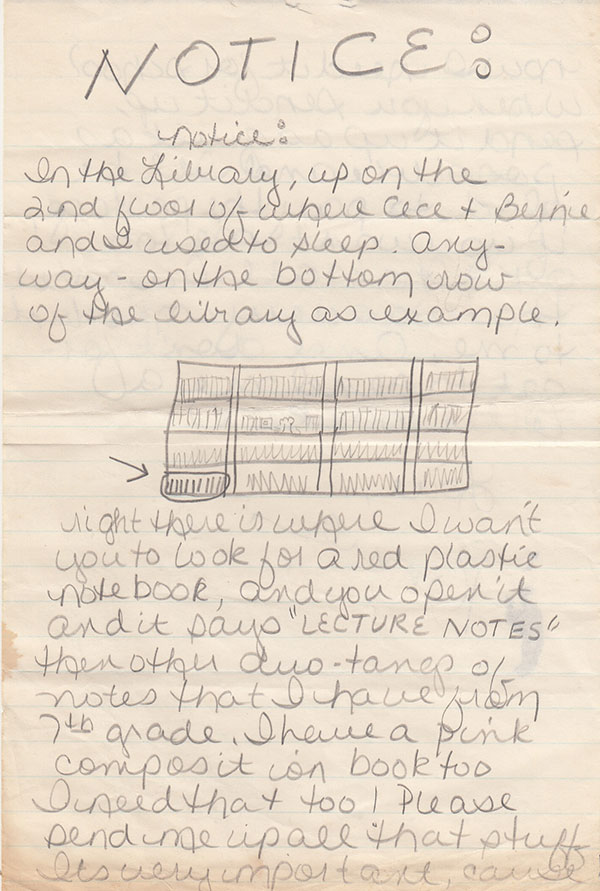 NOTICE:
notice:
In the Library, up on the
2nd floor of where Cece + Bernie
and I used to sleep. Any-
way - on the bottom row
of the library as example.
right there is where I want
you to look for a red plastic
notebook, and you open it
and it says "LECTURE NOTES"
then other duo-tangs of
notes that I have from
7th grade. I have a pink
composition book too
I need that too! Please
send me up all that stuff
Its very important, cause